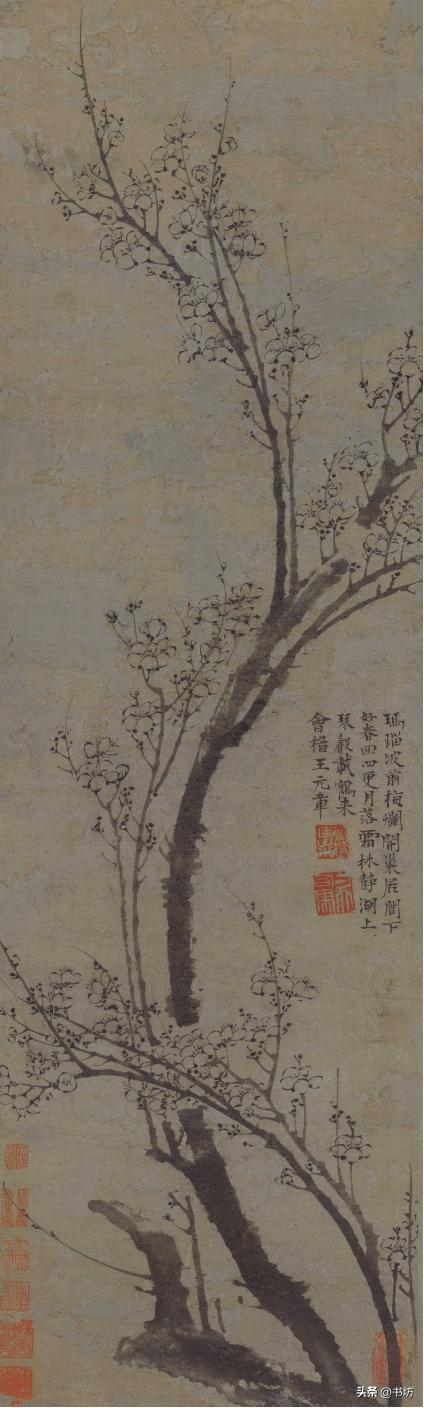 瑪瑙坡前梅爛開巢居閣下
好春回四更月落霜林静湖上
琴聲載鶴来
會稽王元章
头条@书坊